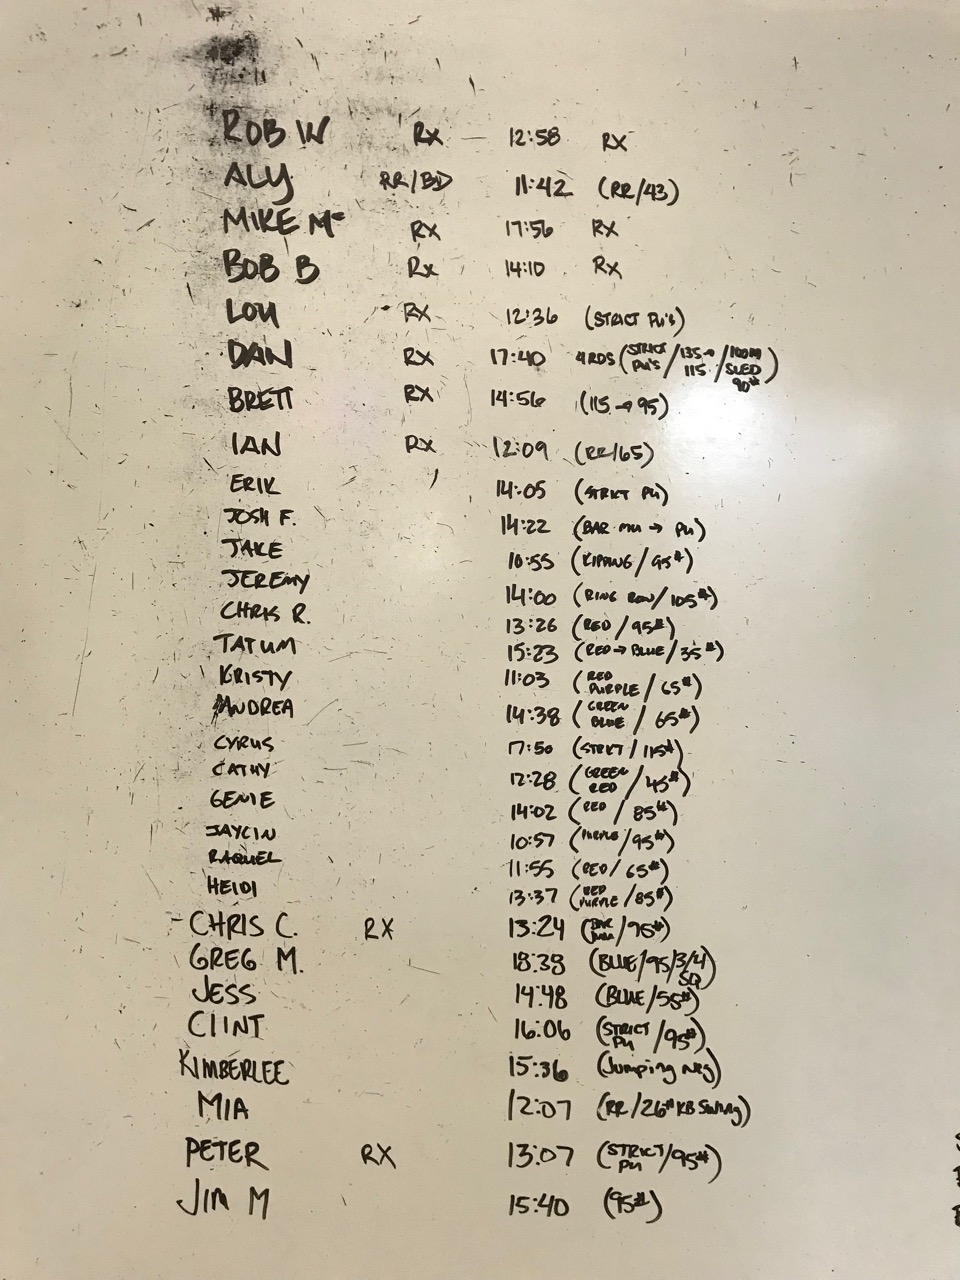 ROB W RX 12:58 RX
ALY RR/BD 11:42 (RR/43)
MIKE Mc RX 17:56 RX
BOB B RX 14:10 RX
LOU RX 12:36 (STRICT PU'S)
DAN RX 17:40 4 RDS (STRICT PU'S / 135→115 / 100M SLED 90#)
BRETT RX 14:56 (115→95)
IAN RX 12:09 (RR/65)
ERIK 14:05 (STRICT PU)
JOSH F. 14:22 (BAR MU → PU)
JAKE 10:55 (KIPPING/95#)
JEREMY 14:00 (RING ROW/105#)
CHRIS R. 13:26 (RED/95#)
TATUM 15:23 (RED→BLUE/35#)
KRISTY 11:03 (RED PURPLE/65#)
ANDREA 14:38 (GREEN BLUE/65#)
CYRUS 17:50 (STRICT/115#)
CATHY 12:28 (GREEN RED/45#)
GENIE 14:02 (RED/85#)
JAYCIN 10:57 (PURPLE/95#)
RAQUEL 11:55 (RED/65#)
HEIDI 13:37 (RED PURPLE/85#)
CHRIS C. RX 13:24 (BAR MU/95#)
GREG M. 18:38 (BLUE/95/3/4 SQ)
JESS 14:48 (BLUE/55#)
CLINT 16:06 (STRICT PU/95#)
KIMBERLEE 15:36 (Jumping neg)
MIA 12:07 (RR/26# KB Swing)
PETER RX 13:07 (STRICT PU/95#)
JIM M 15:40 (95#)